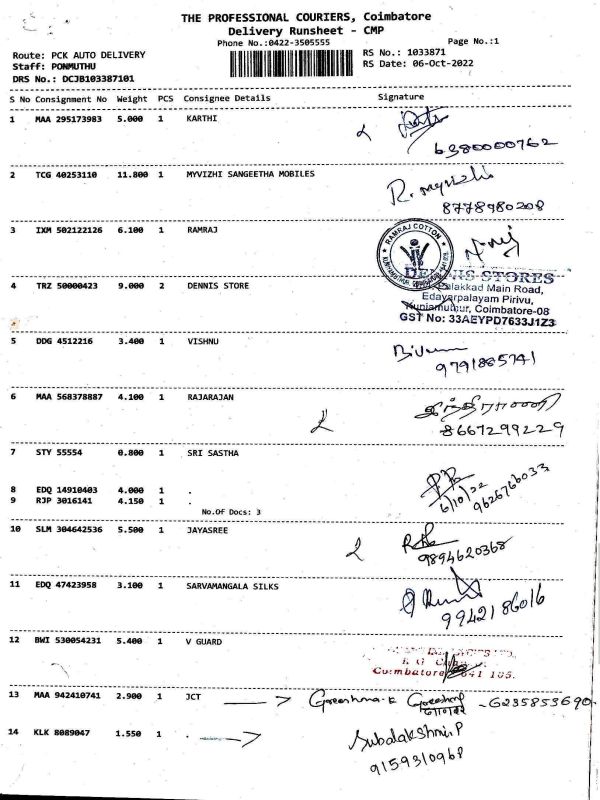 THE PROFESSIONAL COURIERS, Coimbatore
Delivery Runsheet - CMP
Phone No.:0422-3505555
Page No.:1
Route: PCK AUTO DELIVERY
RS No.: 1033871
Staff: PONMUTHU
RS Date: 06-Oct-2022
DRS No.: DCJB103387101
S No Consignment No Weight PCS Consignee Details Signature
1 MAA 295173983 5.000 1 KARTHI
6380000762
2 TCG 40253110 11.800 1 MYVIZHI SANGEETHA MOBILES
R. myvizhi
8778980208
3 IXM 502122126 6.100 1 RAMRAJ
RAMRAJ COTTON
DENNIS STORES
4 TRZ 50000423 9.000 2 DENNIS STORE
Palakkad Main Road,
Edayarpalayam Pirivu,
Kuniamuthur, Coimbatore-08
GST No: 33AEYPD7633J1Z3
5 DDG 4512216 3.400 1 VISHNU
9791885741
6 MAA 568378887 4.100 1 RAJARAJAN
இந்திராணி
8667299229
7 STY 55554 0.800 1 SRI SASTHA
6/10/22
9626766033
8 EDQ 14910403 4.000 1 .
9 RJP 3016141 4.150 1 .
No.Of Docs: 3
10 SLM 304642536 5.500 1 JAYASREE
9894620368
11 EDQ 47423958 3.100 1 SARVAMANGALA SILKS
9942186016
12 BWI 530054231 5.400 1 V GUARD
Coimbatore 641 105.
13 MAA 942410741 2.900 1 JCT → Greeshma.K Greeshma - 6235853690
6/10/22
14 KLK 8089047 1.550 1 . → Subalakshmi.P
9159310968